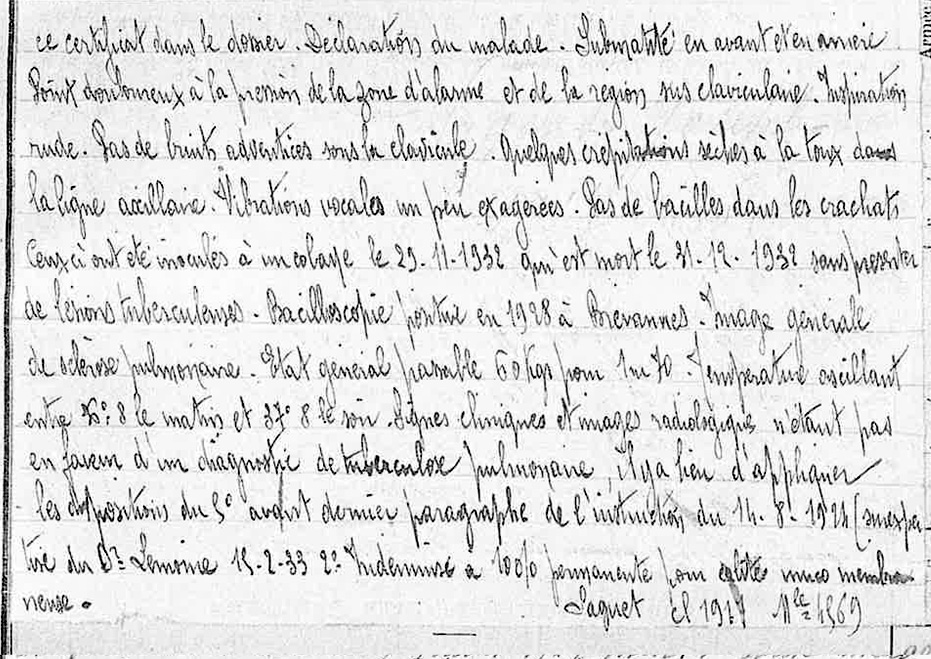 ce certificat dans le dossier. Declaration du malade. Submatité en avant et en arriere.
Point douloureux à la pression de la zone d'alarme et de la region sus claviculaire. Inspiration
rude. Pas de bruits adventices sous la clavicule. Quelques crepitations sèches à la toux dans
la ligne axillaire. Vibrations vocales un peu exagerees. Pas de bacilles dans les crachats
Ceux ci ont été inoculés à un cobaye le 29-11-1932 qui est mort le 31-12-1932 sans presenter
de lésions tuberculeuses. Bacilloscopie positive en 1928 à Brevannes. Image generale
de sclerose pulmonaire. Etat general passable 60 kgs pour 1m70. Temperature oscillant
entre 36°8 le matin et 37°8 le soir. Signes cliniques et images radiologiques n'étant pas
en faveur d'un diagnostic de tuberculose pulmonaire, il y a lieu d'appliquer
les dispositions du 5° avant dernier paragraphe de l'instruction du 14-8-1924 (surexper
tise du Dr Lemoine 15-2-33 2° Indemnise à 100% permanente pour colite muco membra
neuse.
Saquet Cl 1917 Mle 4569
Armée